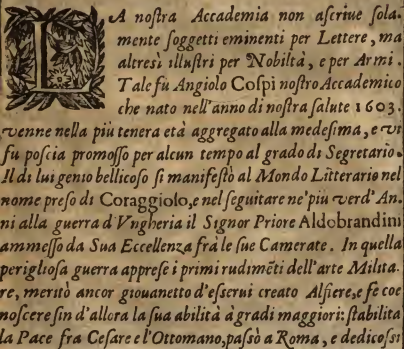 LA noſtra Accademia non aſcriue ſola-
mente ſoggetti eminenti per Lettere, ma
altresì illuſtri per Nobiltà, e per Armi.
Tale fu Angiolo Coſpi noſtro Accademico
che nato nell'anno di noſtra ſalute 1603.
venne nella più tenera età aggregato alla medeſima, e vi
fu poſcia promoſſo per alcun tempo al grado di Segretario.
Il di lui genio bellicoſo ſi manifeſtò al Mondo Litterario nel
nome preſo di Coraggioſo, e nel ſeguitare ne'più verd' An-
ni alla guerra d'Vngheria il Signor Priore Aldobrandini
ammeſſo da Sua Eccellenza frà le ſue Camerate. In quella
perìglioſa guerra appreſe i primi rudimẽti dell'arte Milita-
re, meritò ancor giouanetto d'eſserui creato Alfiere, e fe co-
noſcere ſin d'allora la ſua abilità à gradi maggiori: ſtabilita
la Pace fra Ceſare e l'Ottomano, paſsò a Roma, e dedicoſsi